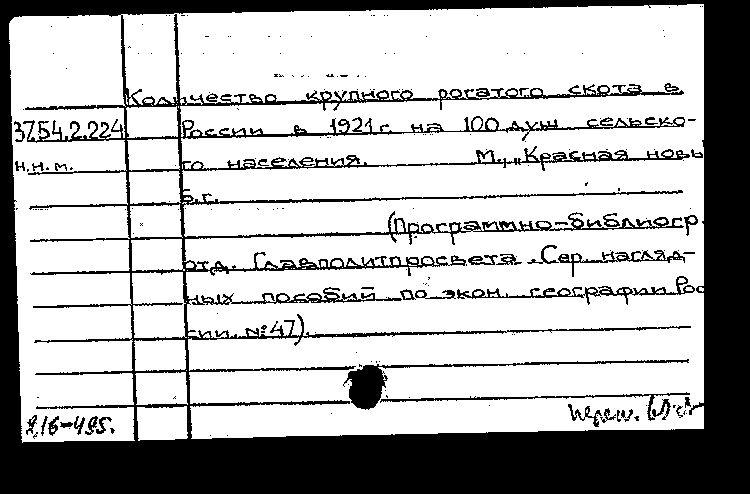 Количество крупного рогатого скота в
37.54.2.224 России в 1921 г. на 100 душ сельско-
н.н.м. го населения. М., „Красная новь
б.г.
(Программно-библиогр.
отд. Главполитпросвета. Сер. нагляд-
ных пособий по экон. географии Рос
сии. №47).
216-495.